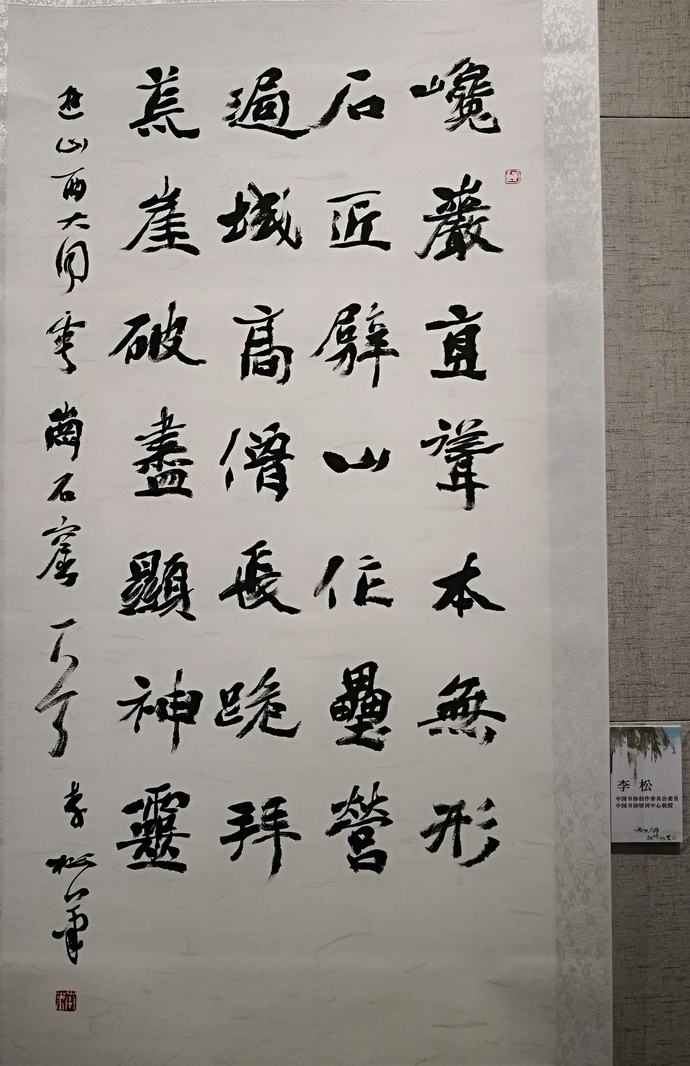 巉巖直聳本無形
石匠劈山作壘營
遍域高僧長跪拜
荒崖破盡顯神靈
遊山西大同雲崗石窟一首
李松筆
李 松
中国书协创作委员会委员
中国书协培训中心教授